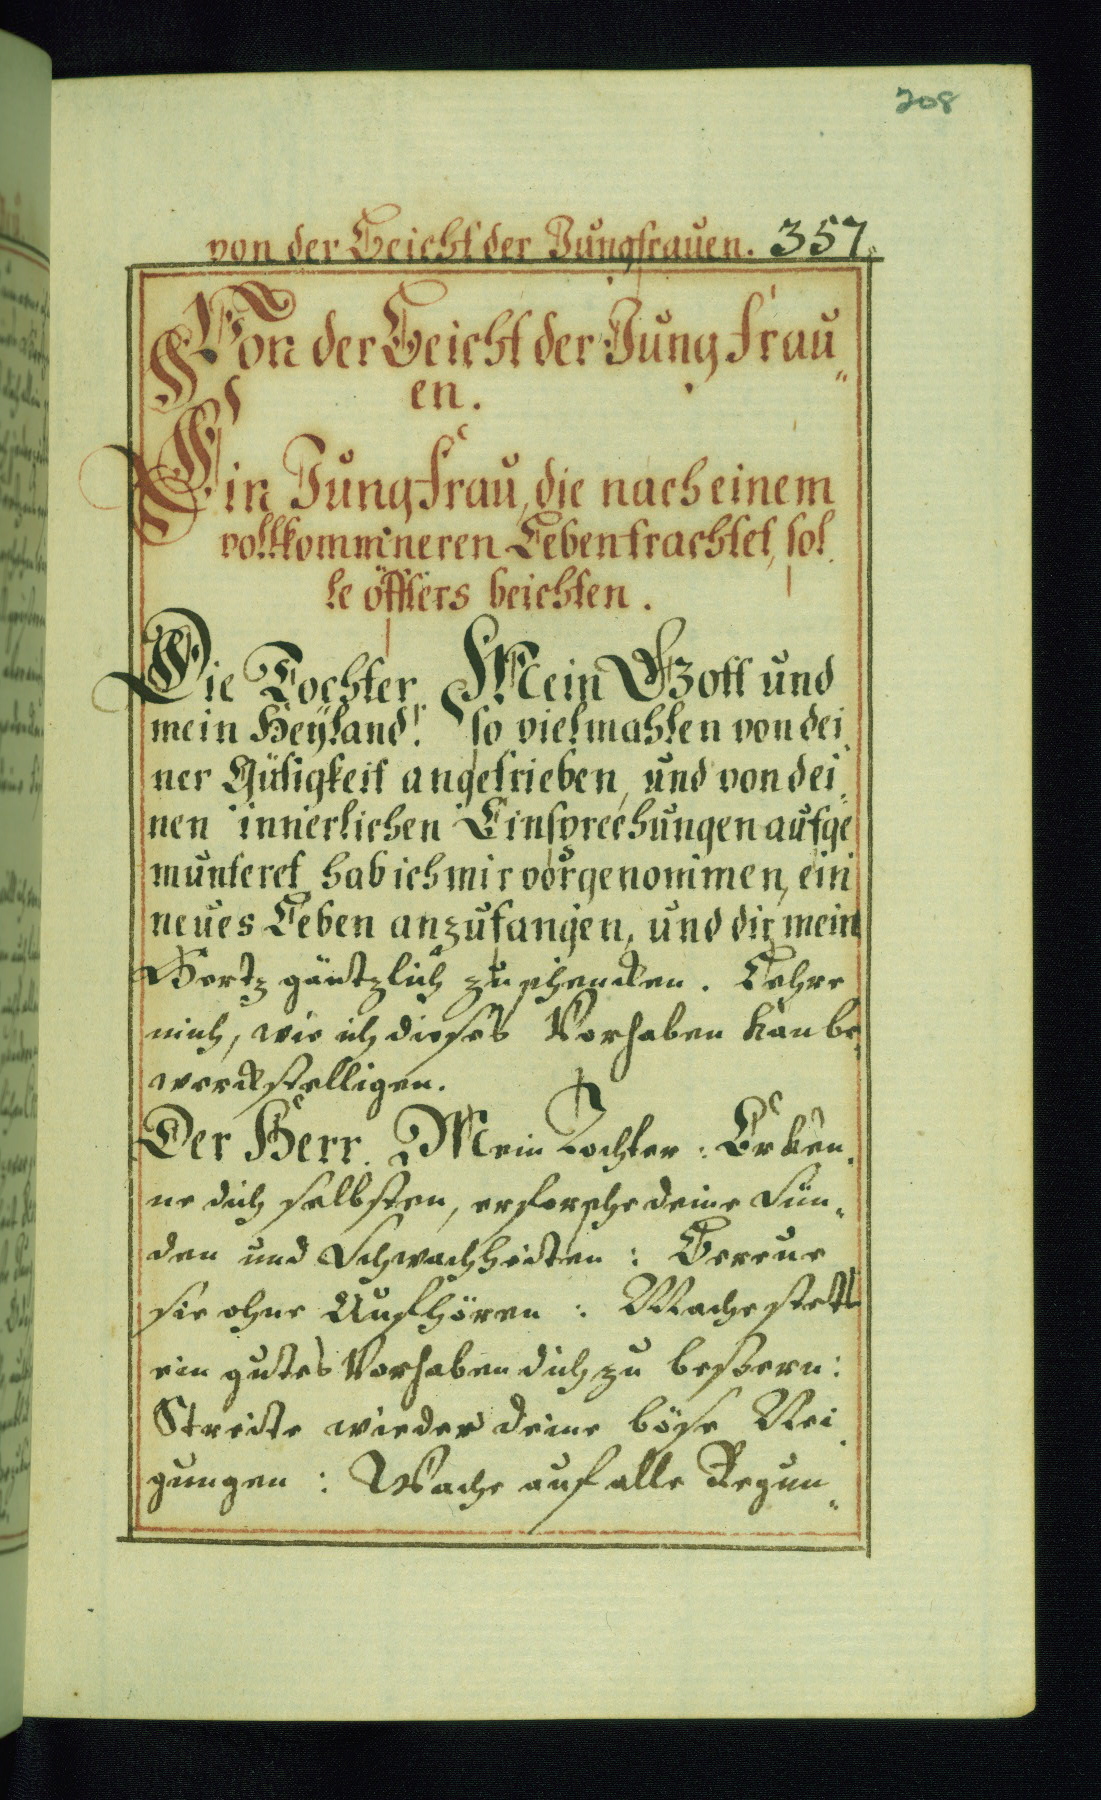 208
von der Beicht der Jungfrauen. 357.
Von der Beicht der Jungfrau„
en.
Ein Jungfrau, die nach einem
vollkommneren Leben trachtet, sol„
le öffters beichten.
Die Tochter. Mein Gott und
mein Heyland! so vielmahlen von dei„
ner Gütigkeit angetrieben, und von dei„
nen innerlichen Einsprechungen aufge
munteret hab ich mir vorgenommen, ein
neues Leben anzufangen, und dir mein
Hertz gäntzlich zu schencken. Lehre
mich, wie ich dieses Vorhaben kan be„
werckstelligen.
Der Herr. Mein Tochter: Erken„
ne dich selbsten, erforsche deine Sün„
den und Schwachheiten: Bereue
sie ohne Aufhören: Mache stets
ein gutes Vorhaben dich zu bessern:
Streite wieder deine böse Nei„
gungen: Wache auf alle Regun„